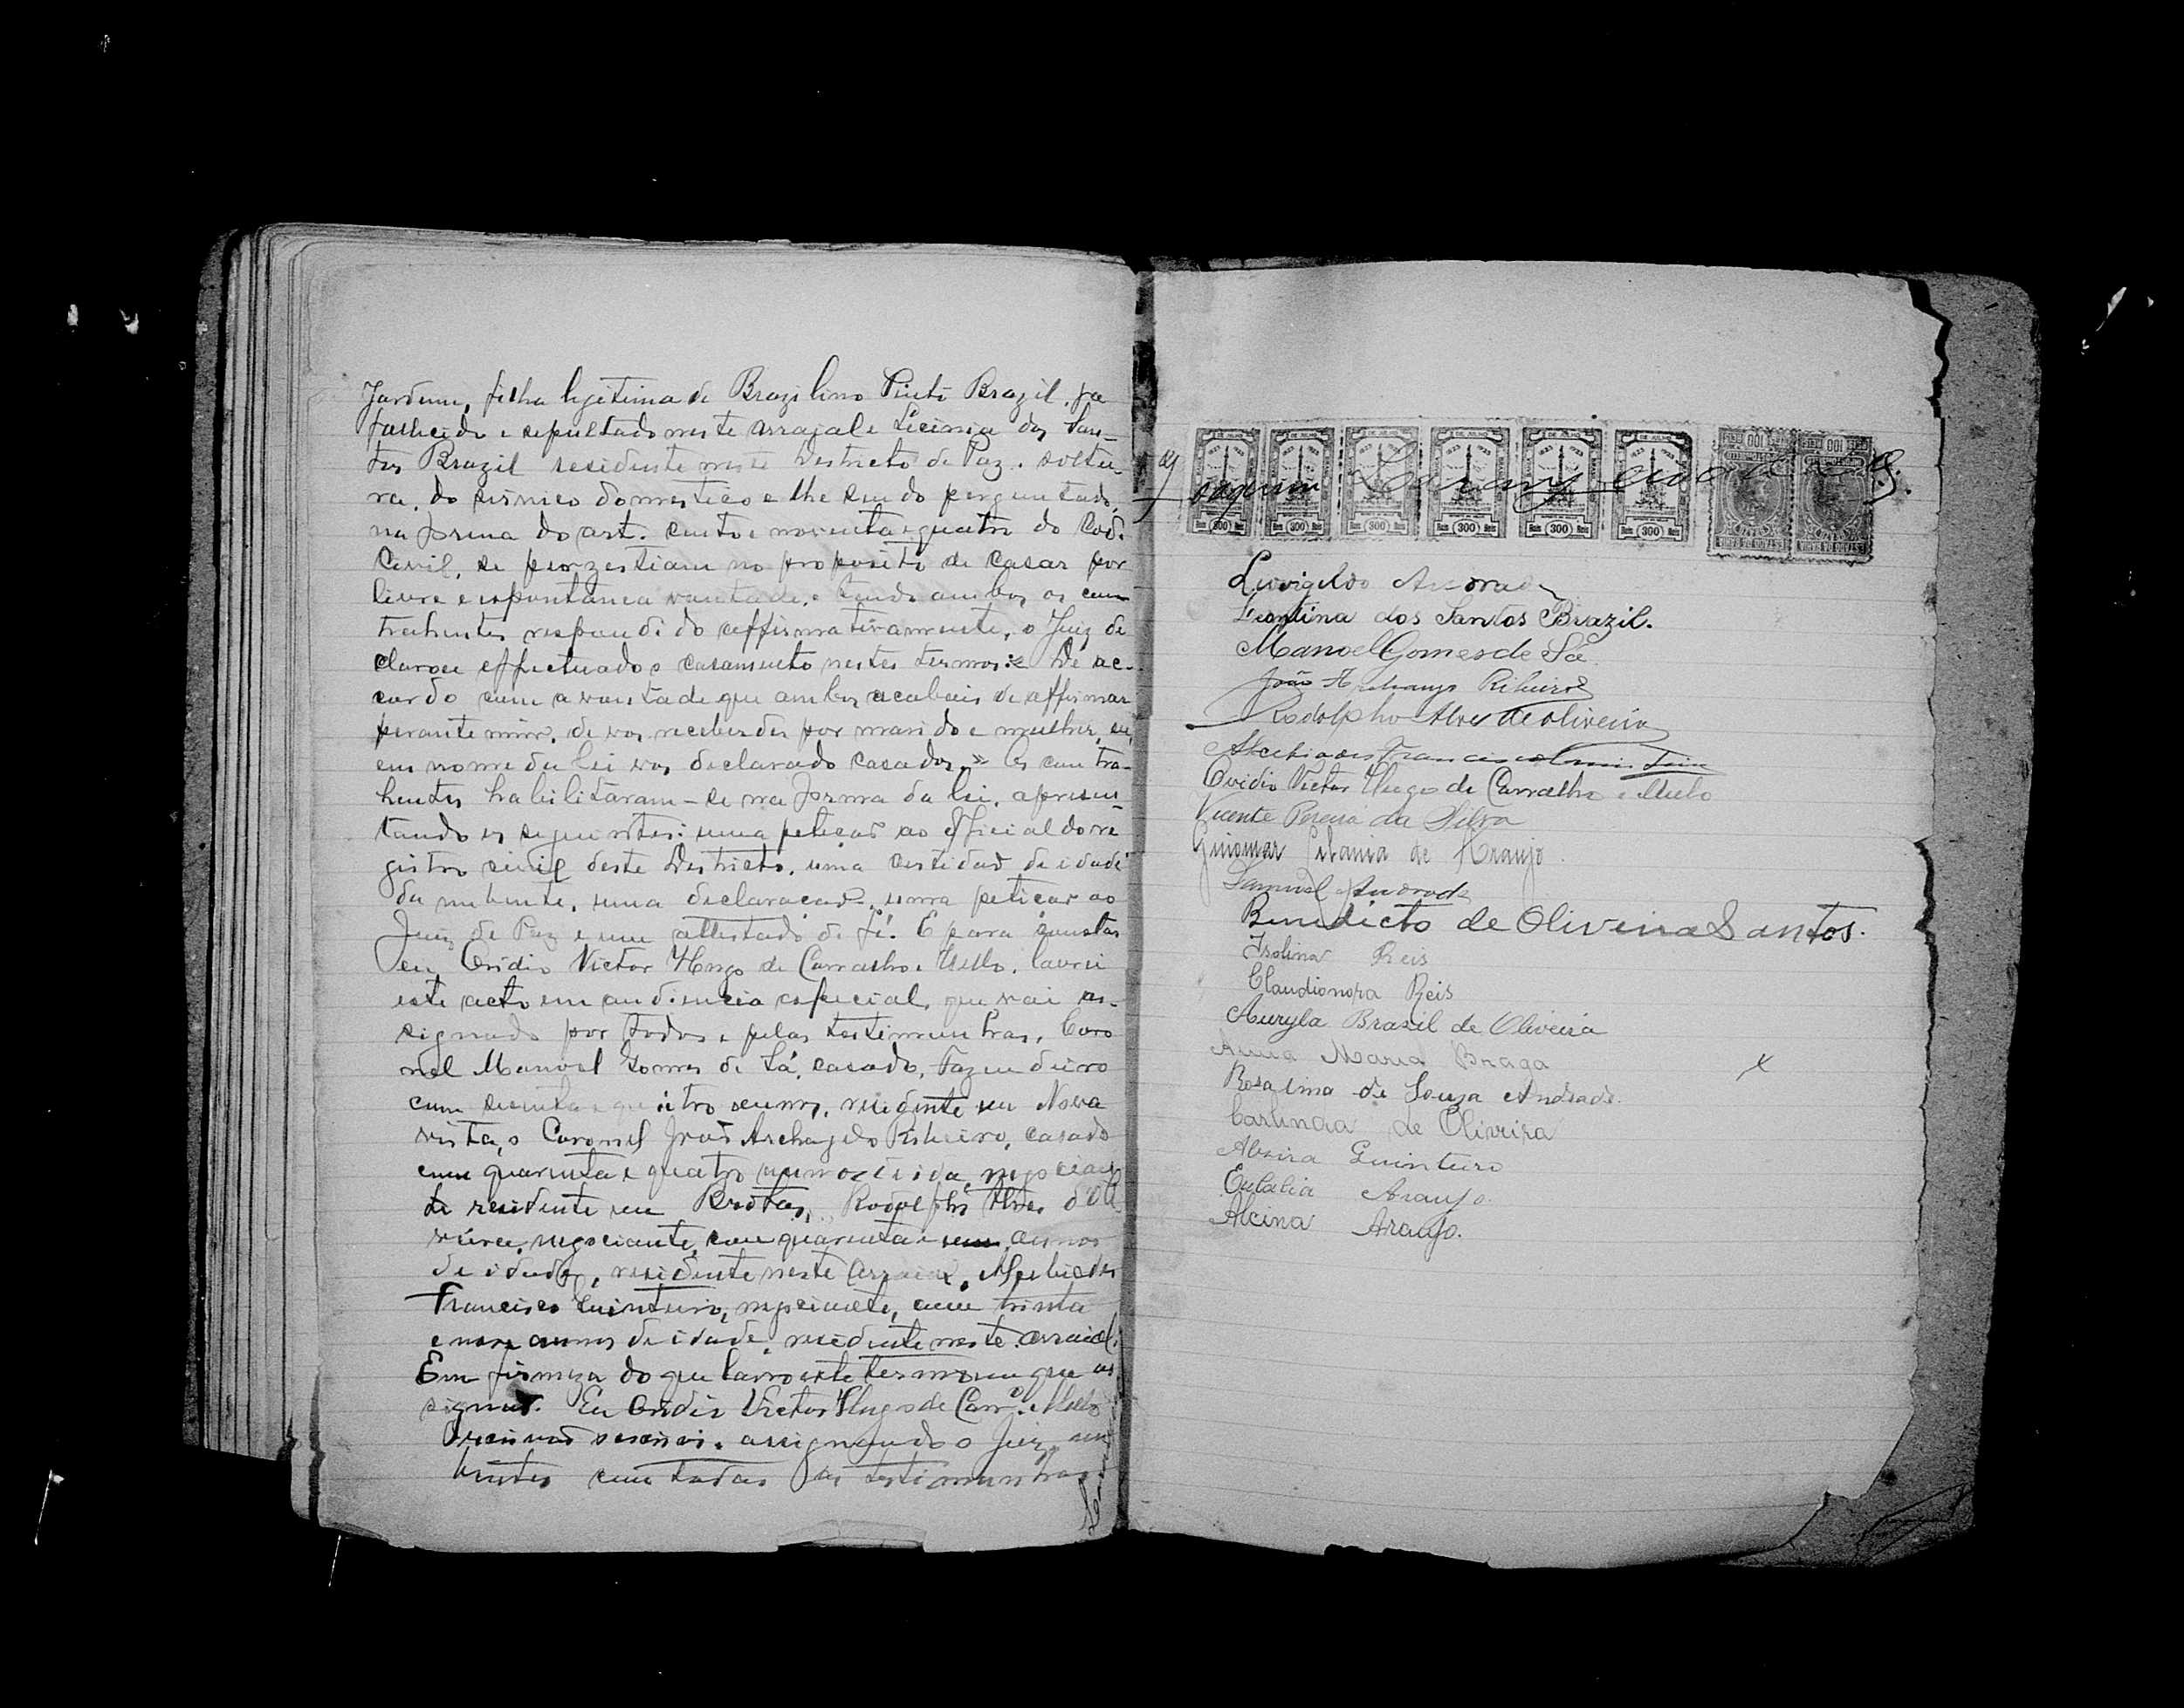 Jardim, filha legitima de Brazilino Pinto Brazil, ja
fallecido e sepultado neste arraial e Licinia dos San-
tos Brazil residente neste Destricto de Paz. soltei-
ra, do serviço domestico e lhe sendo perguntado,
na forma do art. cento e noventa e quatro do Cod.
Civil, se perzestiam no proposito de casar por
livre e espontanea vontade, e tendo ambos os con
trahentes respondido affirmativamente, o Juiz de
clarou effectuado o casamento nestes termos: « De ac-
cordo com a vontade que ambos acabais de affirmar
perante mim, de vos receberdes por marido e mulher, eu,
em nome da lei vos declarado casados. » Os contra-
hentes habilitaram-se na forma da lei, apresen-
tando os seguintes: uma petição ao official do re
gistro civil deste Destricto, uma certidão de idade
da nubente, uma declaração, uma petição ao
Juiz de Paz e um attestado de fé. E para constar
eu, Ovidio Victor Hugo de Carvalho e Mello, lavrei
este acto em audiencia especial, que vai as-
signado por todos e pelas testimunhas, Coro
nel Manoel Gomes de Sá, casado, Fazendeiro
com sessenta e quatro annos, residente em Nova
vista, o Coronel João Archagelo Ribeiro, casado
com quarenta e quatro annos de idade, negocian
te residente em Brotas, Rodolpho Alves d'Oli
veira, negociante, com quarenta e um annos
de idade, residente neste arraial, Alcebiades
Francisco Guinteiro, negociante, com trinta
e nove annos de idade, residente neste arraial.
Em firmeza do que lavro este termo em que as
signam. Eu Ovidio Victor Hugo de Carv.º e Mello
Escrivão escrevi. assignando o Juiz, nu
bentes com todas as testimunhas
Joaquim Laranjeira
2 DE JULHO 1823 1923 Reis 300 Reis
2 DE JULHO 1823 1923 Reis 300 Reis
2 DE JULHO 1823 1923 Reis 300 Reis
2 DE JULHO 1823 1923 Reis 300 Reis
2 DE JULHO 1823 1923 Reis 300 Reis
2 DE JULHO 1823 1923 Reis 300 Reis
REIS 100 REIS ESTADO DA BAHIA
REIS 100 REIS ESTADO DA BAHIA
Luvigildo Andrade
Leontina dos Santos Brazil.
Manoel Gomes de Sá
João Archanjo Ribeiro
Rodolpho Alves de Oliveira
Alcebiades Francisco Guinteiro
Ovidio Victor Hugo de Carvalho e Mello
Vicente Pereira da Silva
Guiomar Litania de Araujo.
Samuel Andrade
Benedicto de Oliveira Santos.
Isolina Reis
Claudionora Reis
Auryla Brasil de Oliveira
Anna Maria Braga x
Rosalina de Souza Andrade.
Carlinda de Oliveira
Alzira Guinteiro
Eulalia Araujo.
Alcina Araujo.